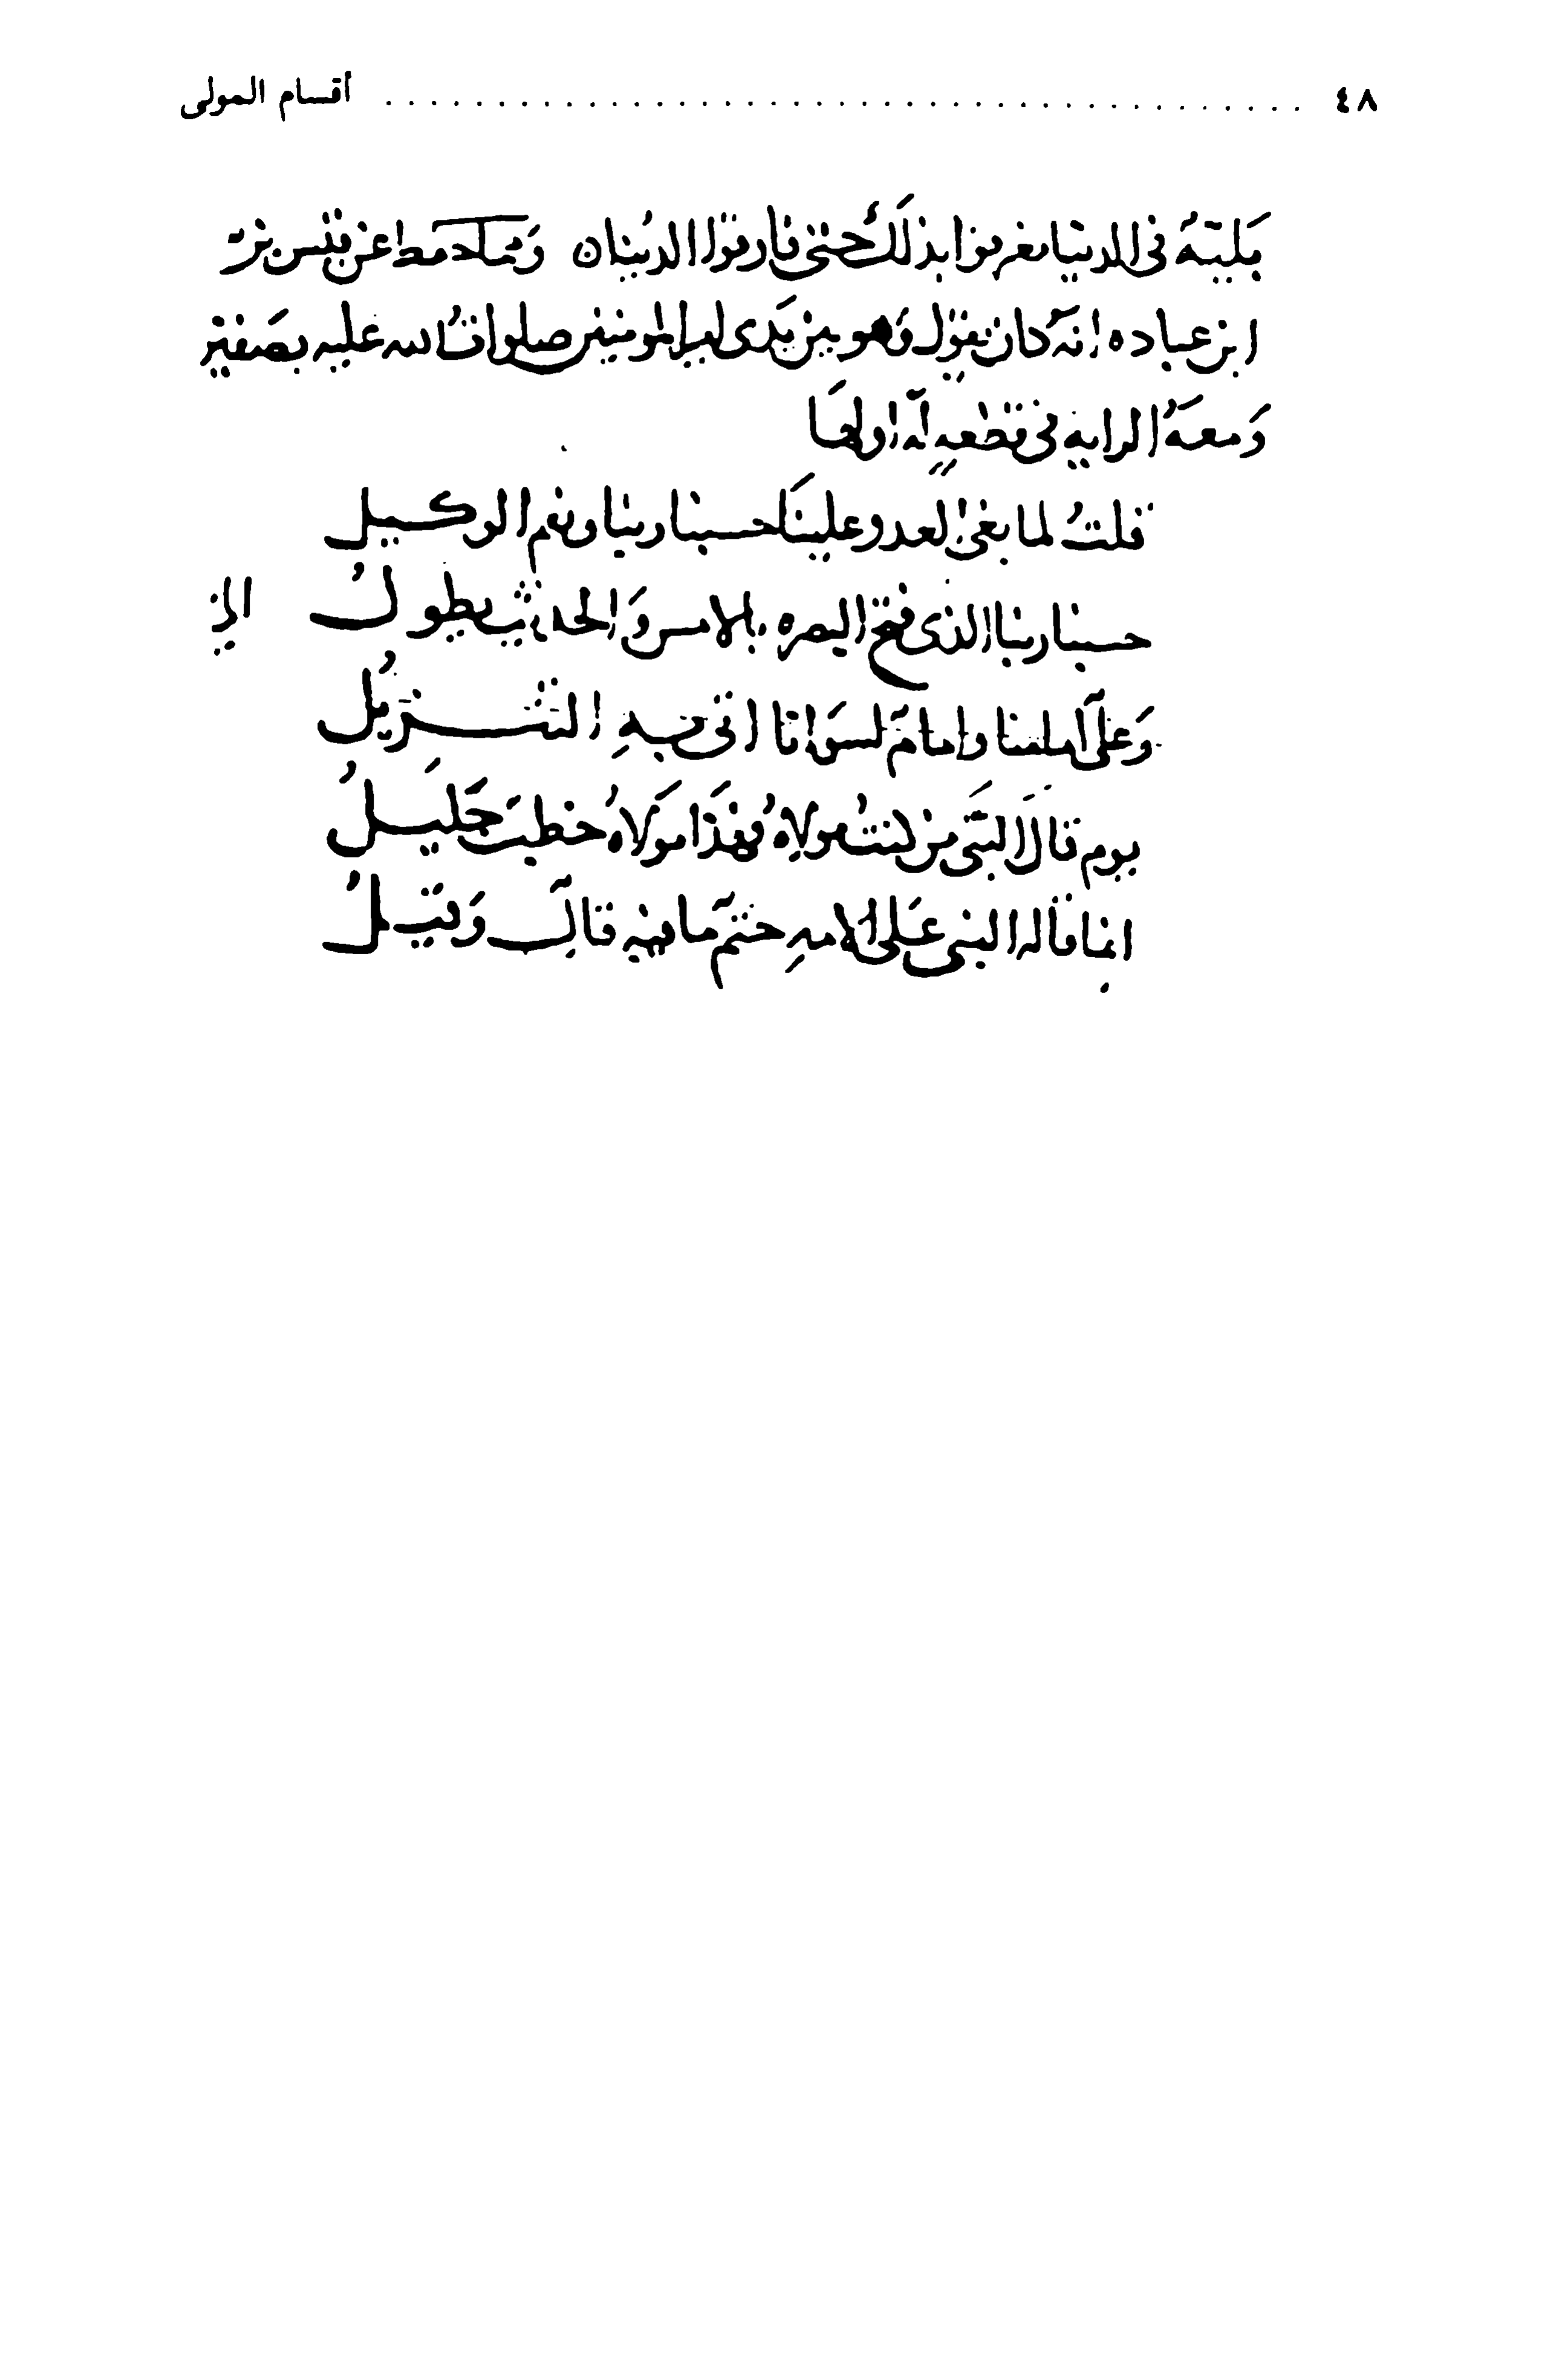 ٤٨ ........................................ أقسام المولى
بليته في الدنيا معترفا بذلك حتى فارقوا الدنيا وما حفظ عن قيس
ابن عباده انه كان يقول وهو بين يدى امير المومنين صلوات الله عليه بصفين
ومعه الرايه في قطعه له اولها
قلت لما بغى العدو علينا حسبنا ربنا ونعم الوكيل
حسبنا ربنا الذى فتق البصره بالامس والحديث يطول
وعلى امامنا وامام لسوانا اتى به التنزيل
يوم قال النبي من كنت مولاه فهذا مولاه خطب جليل
انما قاله النبي على الامه حتم ما فيه قال وقيل